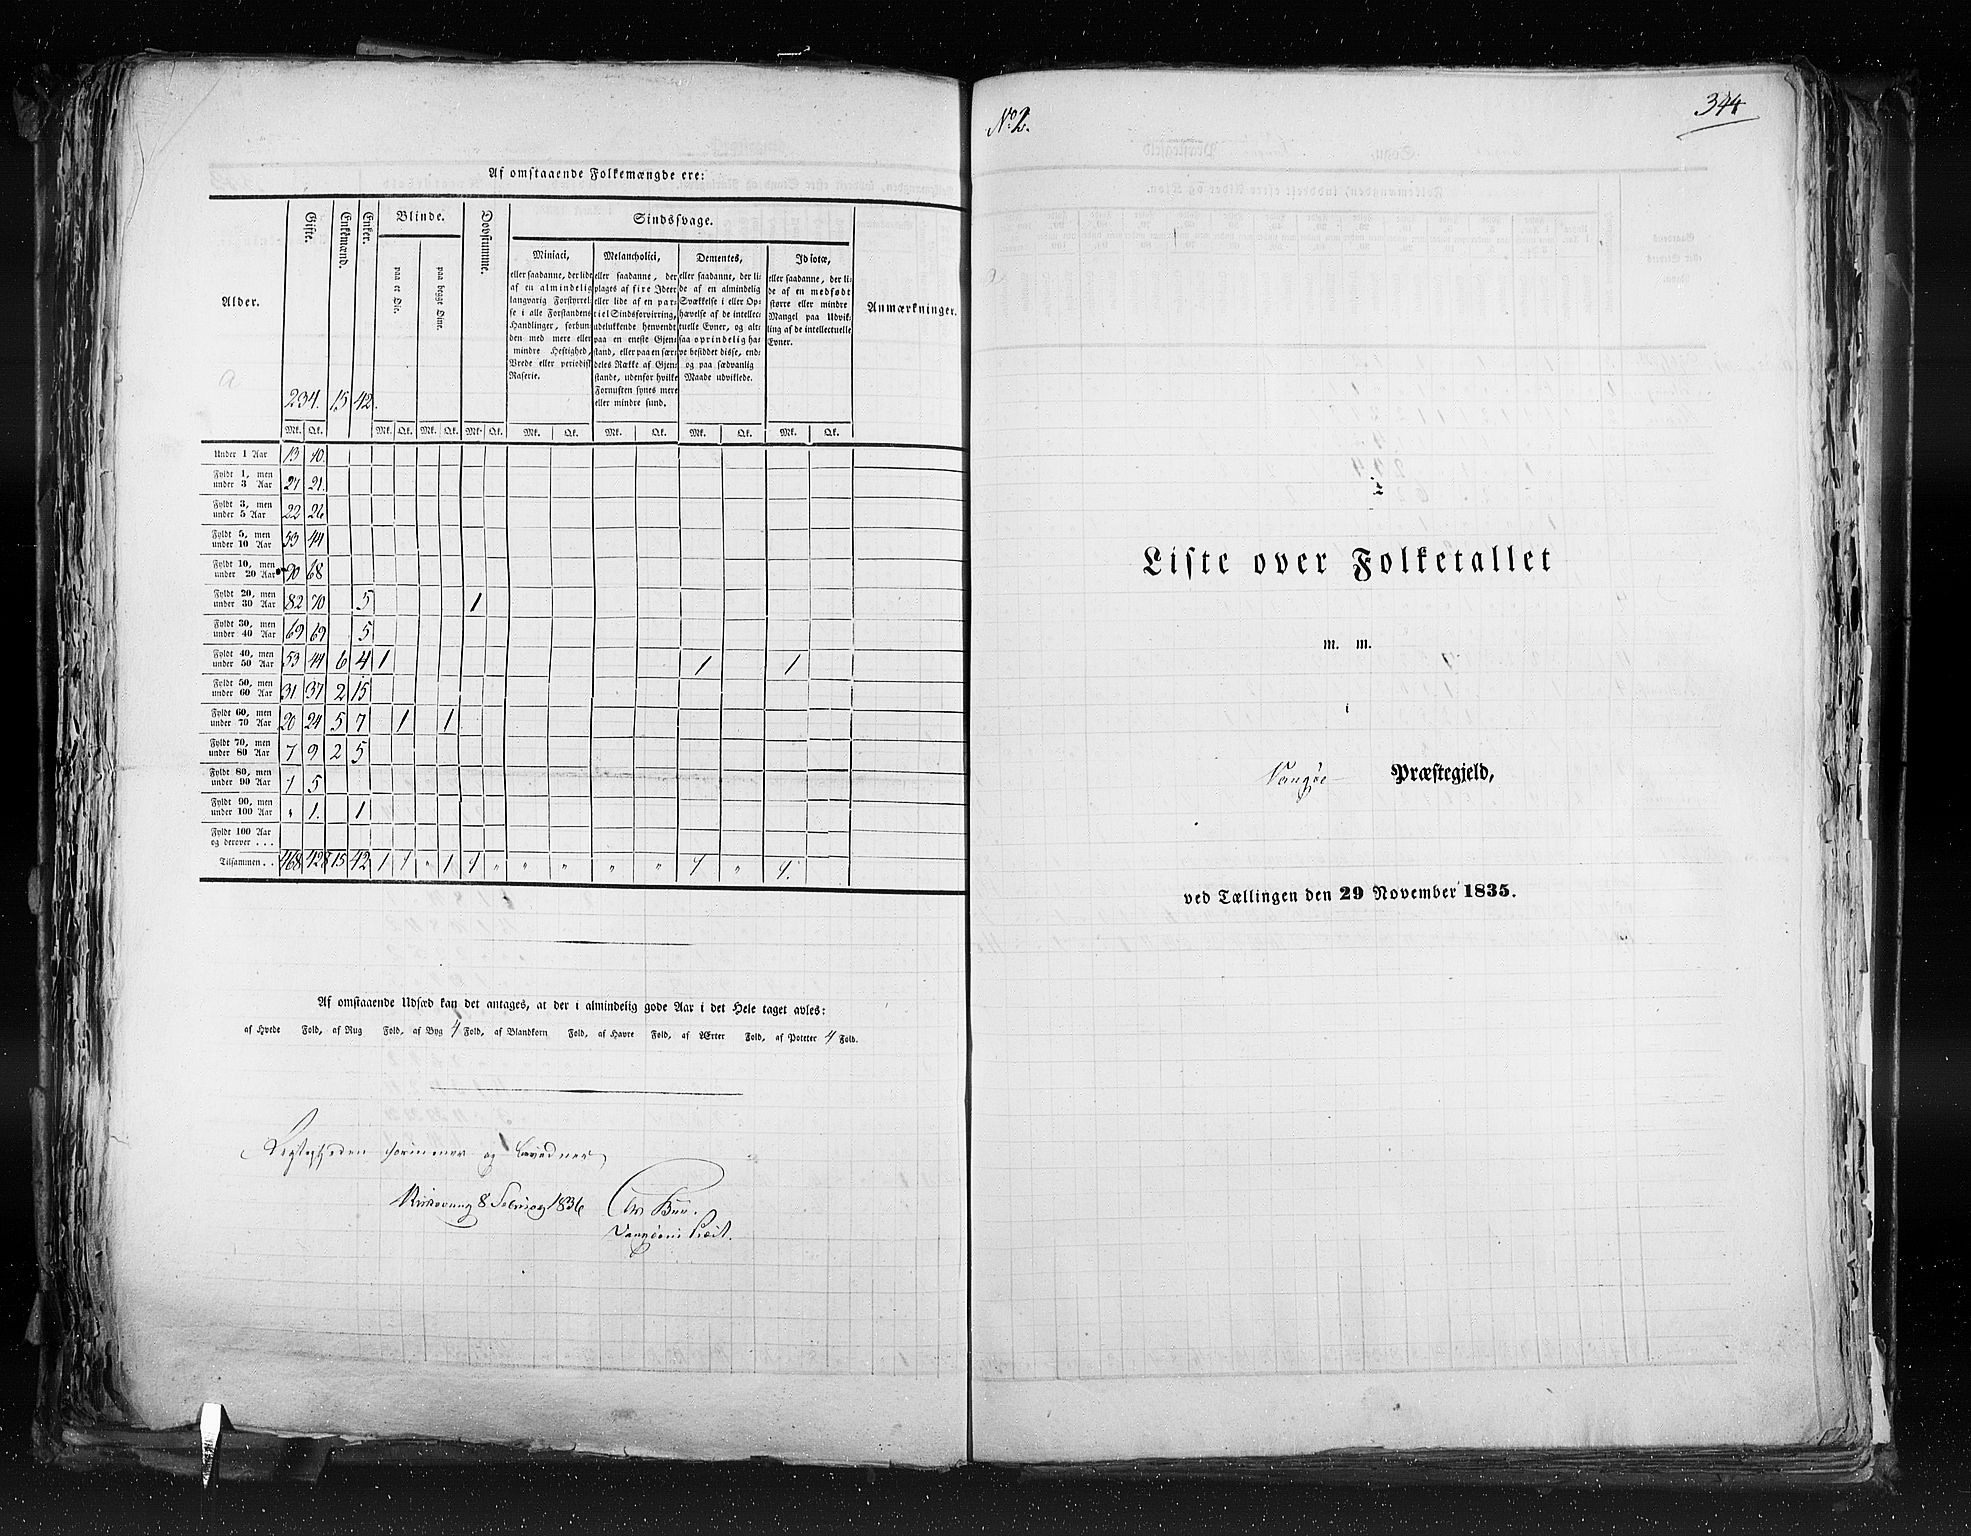 Af omstaaende Folkemængde ere:
Alder.
Gifte.
Enkemænd.
Enker.
Blinde.
paa et Øie.
paa begge Øine.
Døvstumme.
Sindssvage.
Miniaci,
eller saadanne, der lide
af en almindelig
langvarig Forstyrrel-
se i alle Forstandens
Handlinger, forbun-
den med mere eller
mindre Heftighed,
Vrede eller periodisk
Raserie.
Melancholici,
eller saadanne, der
plages af fire Ideer
eller lide af en par-
tiel Sindsforvirring,
udelukkende henvendt
paa en eneste Gjen-
stand, eller paa en sær-
deles Række af Gjen-
stande, udenfor hvilke
Fornuften synes mere
eller mindre sund.
Dementes,
eller saadanne, der li-
de af en almindelig
Svækkelse i eller Op-
hævelse af de intellec-
tuelle Evner, og alt-
saa oprindelig ha-
ve besiddet disse, end-
og paa sædvanlig
Maade udviklede.
Idiotæ,
eller saadanne, der li-
de af en medfødt
større eller mindre
Mangel paa Udvik-
ling af de intellectuelle
Evner.
Anmærkninger.
234. 15 42.
Mk. Qk. Mk. Qk. Mk. Qk. Mk. Qk. Mk. Qk. Mk. Qk. Mk. Qk. Mk. Qk.
Under 1 Aar 13 40.
Fyldt 1, men under 3 Aar 27 21.
Fyldt 3, men under 5 Aar 22 26
Fyldt 5, men under 10 Aar 53 44
Fyldt 10, men under 20 Aar 90 68
Fyldt 20, men under 30 Aar 82 70 5 1
Fyldt 30, men under 40 Aar 69 69 5
Fyldt 40, men under 50 Aar 53 44 6 4 1 1 1
Fyldt 50, men under 60 Aar 31 37 2 15
Fyldt 60, men under 70 Aar 20 24 5 7 1 1
Fyldt 70, men under 80 Aar 7 9 2 5
Fyldt 80, men under 90 Aar 1 5
Fyldt 90, men under 100 Aar " 1. 1
Fyldt 100 Aar og derover . . .
Tilsammen . . 468 428 15 42 1 1 " 1 1 " " " " " 1 " 1.
Af omstaaende Udsæd kan det antages, at der i almindelig gode Aar i det Hele taget avles:
af Hvede Fold, af Rug Fold, af Byg 4 Fold, af Blandkorn Fold, af Havre Fold, af Ærter Fold, af Poteter 4 Fold.
og
8 Februar 1836
No 2.
344
Liste over Folketallet
m. m.
i
Vangøe Præstegjeld,
ved Tællingen den 29 November 1835.